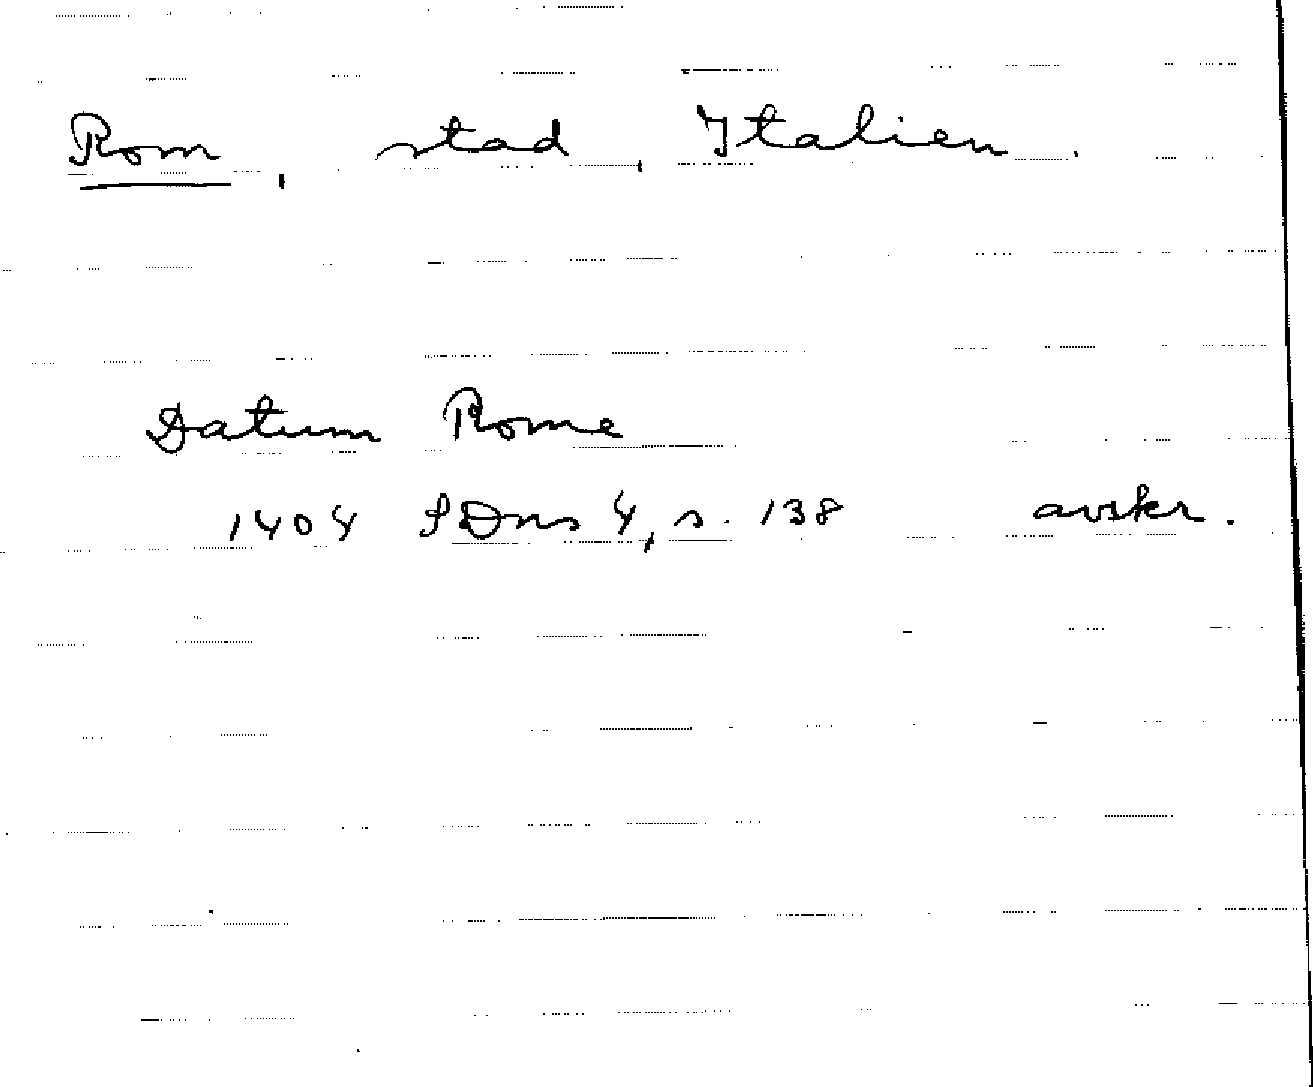 Rom, stad, Italien.
Datum Rome
1404 SDns 4, s. 138 avskr.